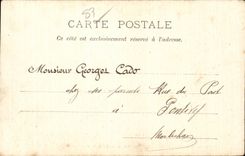 53
CARTE POSTALE
Ce côté est exclusivement réservé à l'adresse.
Monsieur Georges Cado
chez ses parents Rue du Port
à Pontivy
Morbihan